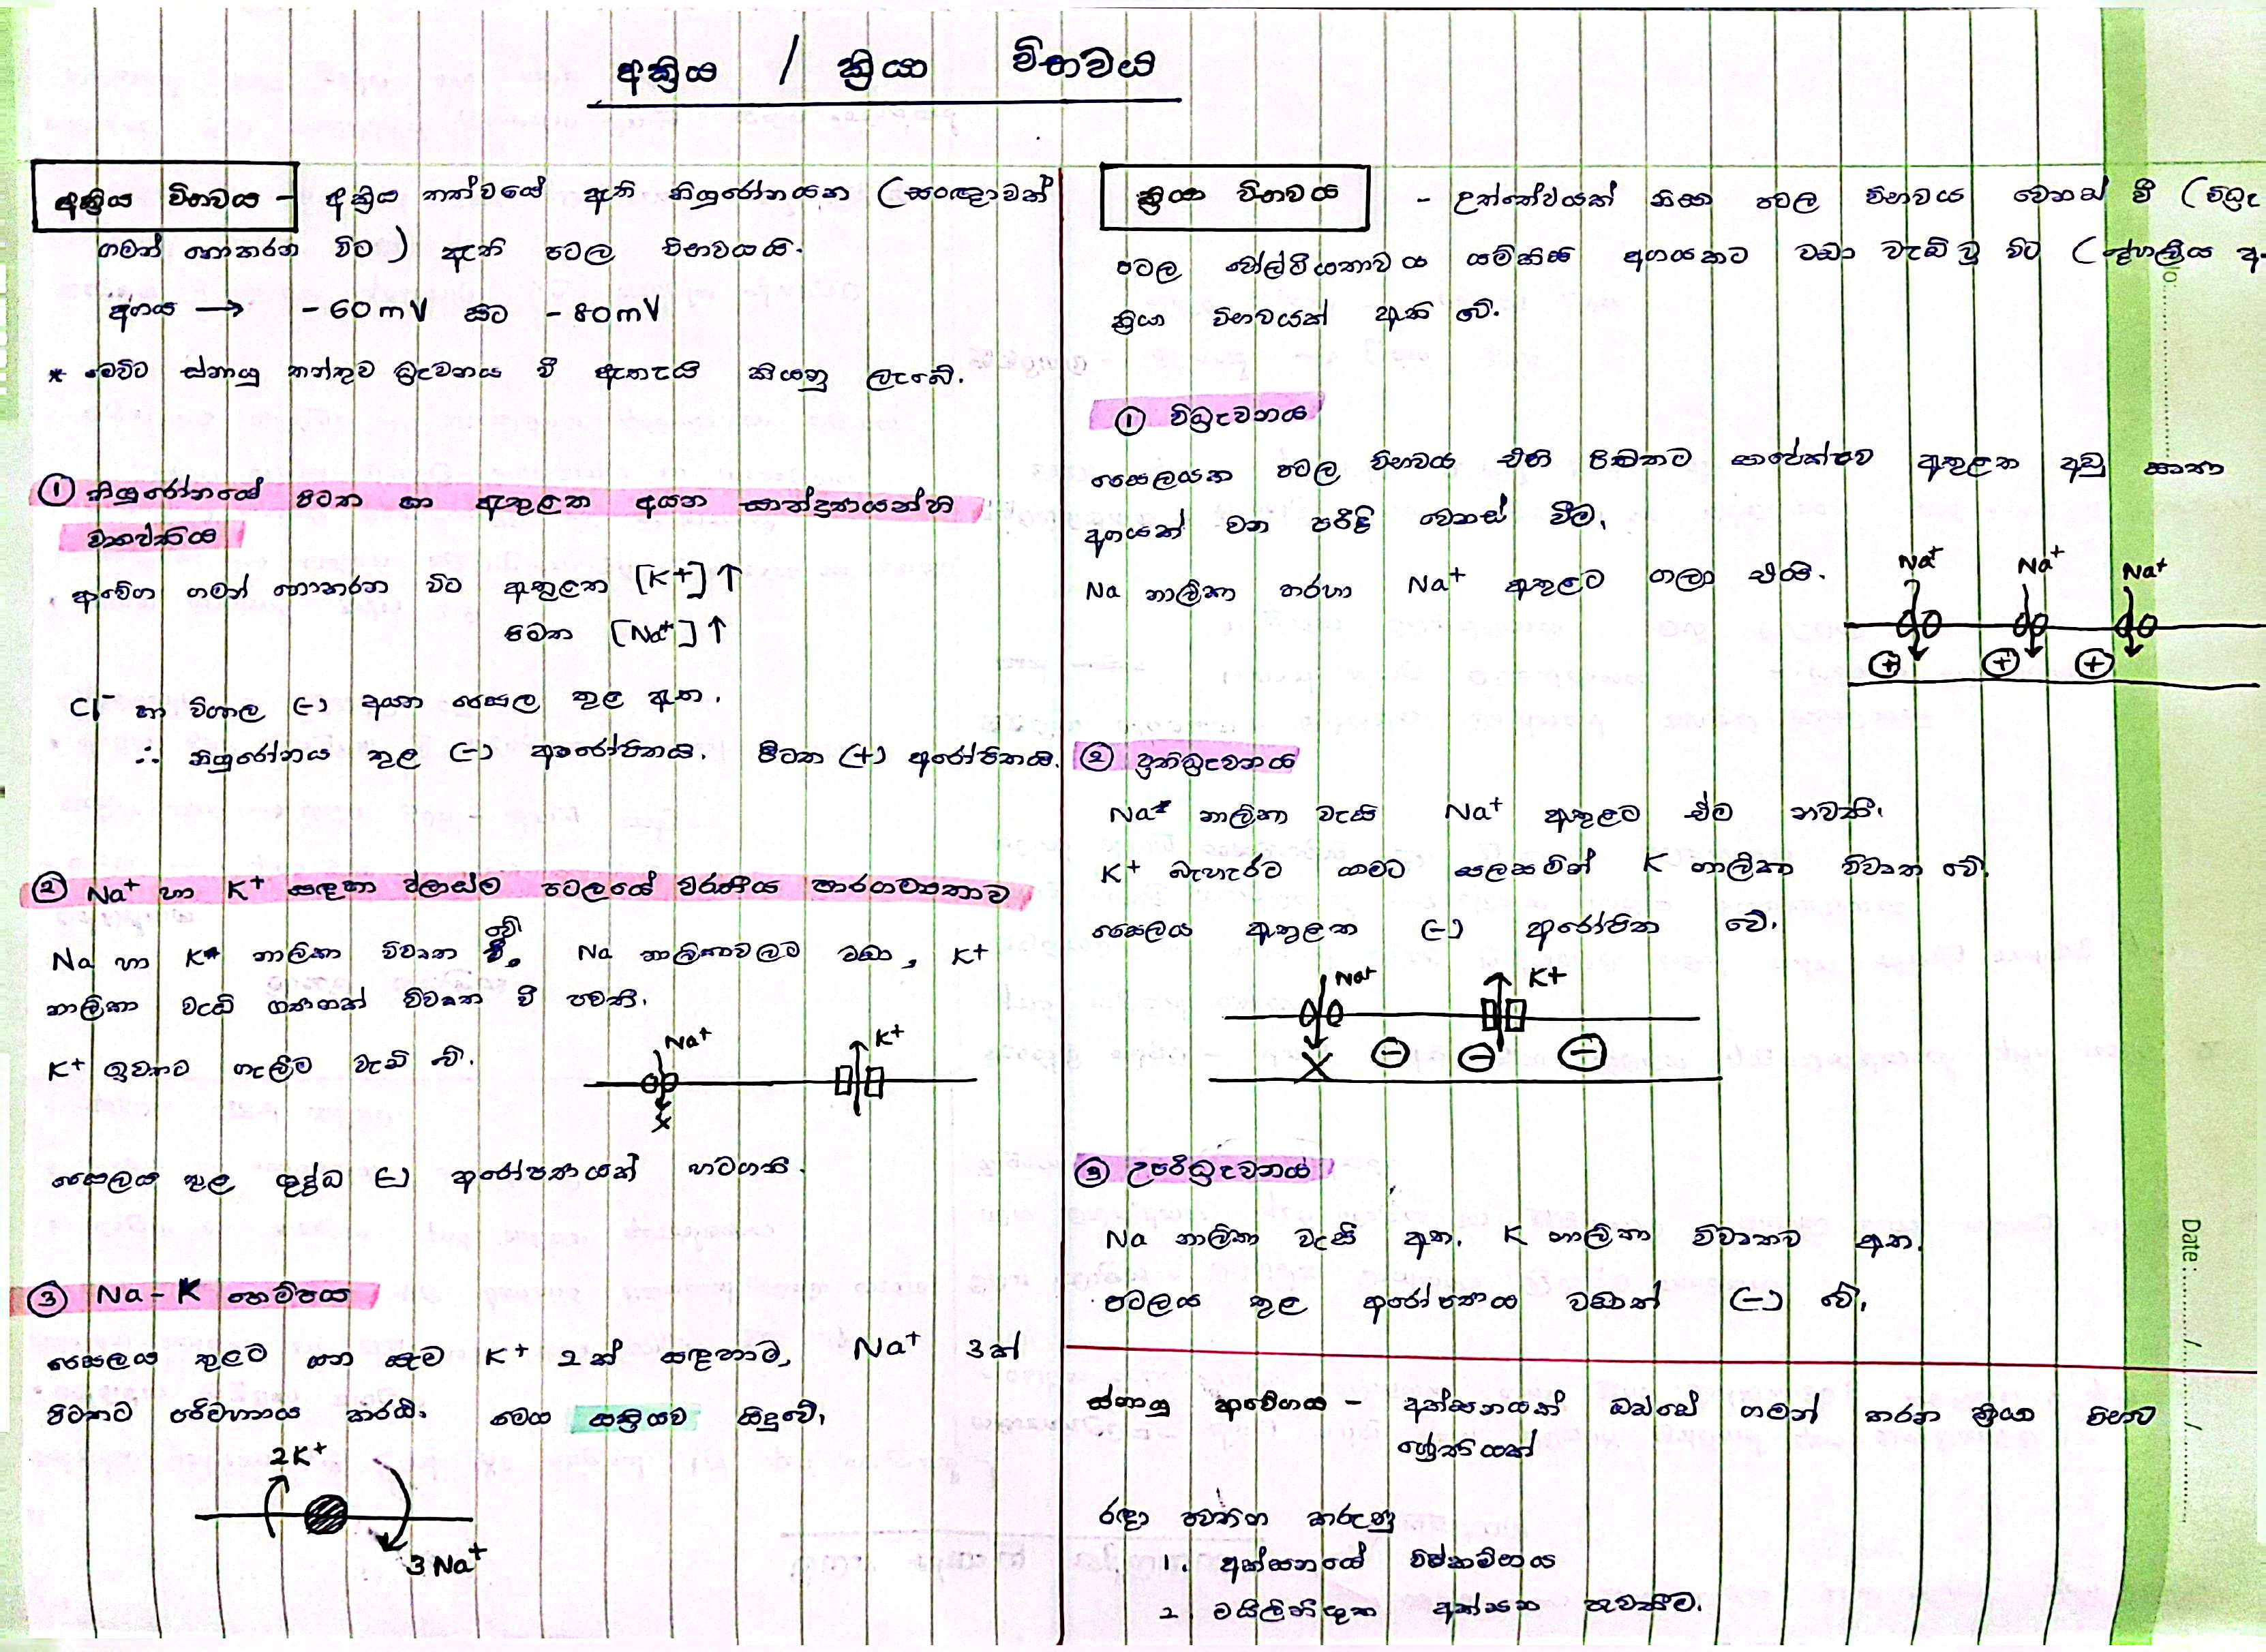 අක්‍රිය / ක්‍රියා විභවය
අක්‍රිය විභවය - අක්‍රිය තත්වයේ ඇති නියුරෝනයක (සංඥාවක්
ගමන් නොකරන විට) ඇති පටල විභවයයි.
අගය → - 60mV සිට - 80mV
* මෙවිට ස්නායු තන්තුව ධ්‍රැවනය වී ඇතැයි කියනු ලැබේ.
① නියුරෝනයේ පිටත හා ඇතුළත අයන සාන්ද්‍රණයන්හි
ව්‍යාප්තිය
ආවේග ගමන් නොකරන විට ඇතුළත [K+] ↑
පිටත [Na+] ↑
Cl⁻ හා විශාල (-) අයන සෛල තුළ ඇත.
∴ නියුරෝනය තුළ (-) ආරෝපිතයි. පිටත (+) ආරෝපිතයි.
② Na+ හා K+ සඳහා ප්ලාස්ම පටලයේ වරණීය පාරගම්‍යතාව
Na හා K නාලිකා විවෘත වේ. Na නාලිකාවලට වඩා, K+
නාලිකා වැඩි ගණනක් විවෘත වී පවතී.
K+ ඉවතට ගැලීම වැඩි වේ.
Na+ K+
X
සෛලය තුළ ශුද්ධ (-) ආරෝපණයක් හටගනී.
③ Na - K පොම්පය
සෛලය තුළට යන සෑම K+ 2ක් සඳහාම, Na+ 3ක්
පිටතට පරිවහනය කරයි. මෙය සක්‍රියව සිදුවේ.
2K+
3 Na+
ක්‍රියා විභවය - උත්තේජයක් නිසා පටල විභවය වෙනස් වී (විධ්‍රැ
පටල වෝල්ටීයතාවය යම්කිසි අගයකට වඩා වැඩි වූ විට (දේහලීය අ
ක්‍රියා විභවයක් ඇති වේ.
① විධ්‍රැවනය
සෛලයක පටල විභවය එහි පිටතට සාපේක්ෂව ඇතුළත අඩු සෘණ
අගයක් වන පරිදි වෙනස් වීම.
Na නාලිකා හරහා Na+ ඇතුළට ගලා එයි.
Na+ Na+ Na+
+ + +
② ප්‍රතිධ්‍රැවනය
Na+ නාලිකා වැසී Na+ ඇතුළට ඒම නවතී.
K+ බැහැරට යාමට සලසමින් K නාලිකා විවෘත වේ.
සෛලය ඇතුළත (-) ආරෝපිත වේ.
Na+ K+
X - - -
③ උපරිධ්‍රැවනය
Na නාලිකා වැසී ඇත. K නාලිකා විවෘතව ඇත.
පටලය තුළ ආරෝපණය වඩාත් (-) වේ.
ස්නායු ආවේගය - අක්සනයක් ඔස්සේ ගමන් කරන ක්‍රියා විභව
ශ්‍රේණියක්
රඳා පවතින කරුණු
1. අක්සනයේ විෂ්කම්භය
2 මයිලිනිභූත අක්සන පැවතීම.
Date : ......../......../........